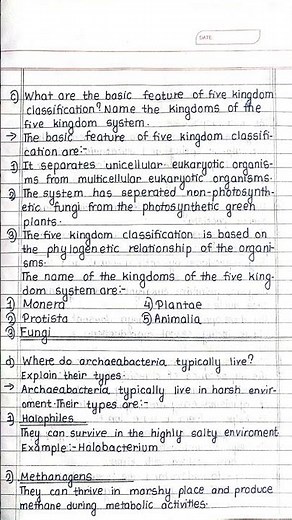 DATE
c) What are the basic feature of five kingdom
classification? Name the kingdoms of the
five kingdom system.
→ The basic feature of five kingdom classifi-
cation are:-
1) It separates unicellular eukaryotic organis-
ms from multicellular eukaryotic organisms.
2) The system has seperated non-photosynth-
etic fungi from the photosynthetic green
plants.
3) The five kingdom classification is based on
the phylogenetic relationship of the organi-
sms.
The name of the kingdoms of the five king-
dom system are:-
1) Monera 4) Plantae
2) Protista 5) Animalia
3) Fungi
d) Where do archaeabacteria typically live?
Explain their types.
→ Archaeabacteria typically live in harsh envir-
oment. Their types are:-
1) Halophiles
They can survive in the highly salty enviroment
Example:- Halobacterium
2) Methanogens
They can thrive in marshy place and produce
methane during metabolic activities.